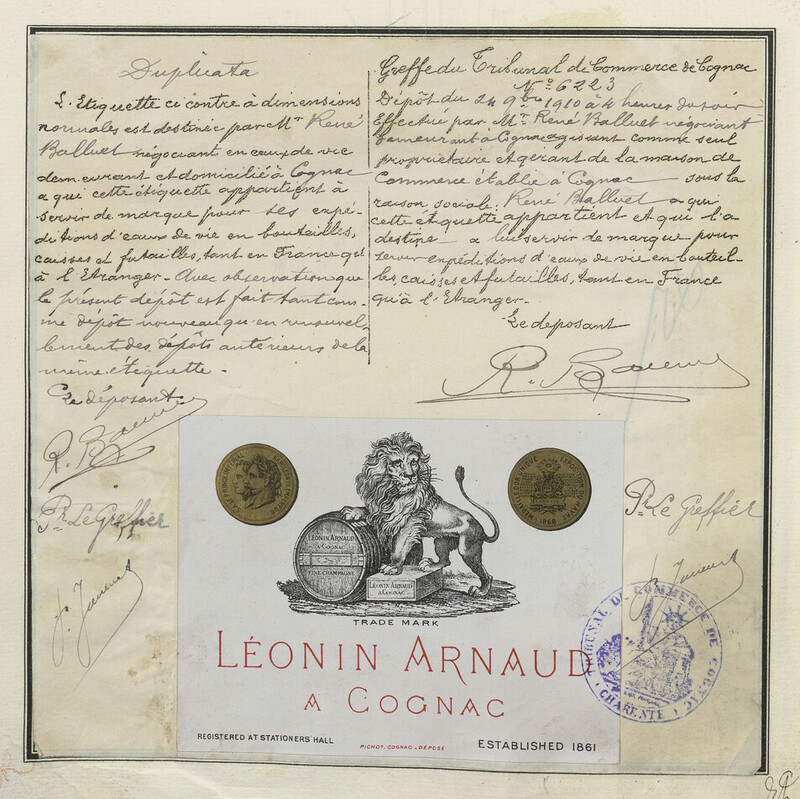 Duplicata
L'Etiquette ci contre à dimensions
normales est destinée par Mr René
Balluet négociant en eaux de vie
demeurant et domicilié à Cognac
a qui cette étiquette appartient à
servir de marque pour ses expé-
ditions d'eaux de vie en bouteilles,
caisses et futailles, tant en France qu'
à l'Etranger - Avec observation que
le présent dépôt est fait tant com-
me dépôt nouveau qu'en renouvel-
lement des dépôts antérieurs de la
même étiquette -
Le déposant
Pr Le Greffier
Greffe du Tribunal de Commerce de Cognac
No 6223
Dépôt du 24 9bre 1910 à 4 heures du soir
Effectué par Mr René Balluet négociant
demeurant à Cognac agissant comme seul
propriétaire et gérant de la maison de
Commerce établie à Cognac sous la
raison sociale: René Balluet a qui
cette étiquette appartient et qui l'a
destine a lui servir de marque pour
server expéditions d'eaux de vie en bouteil-
les, caisses et futailles, tant en France
qu'à l'Etranger-
Le deposant
Pr Le Greffier
EXPOSITION DU HAVRE
1868
LÉONIN ARNAUD
A COGNAC
FINE CHAMPAGNE
LÉONIN ARNAUD
A COGNAC
TRADE MARK
LÉONIN ARNAUD
A COGNAC
REGISTERED AT STATIONERS' HALL
PICHOT, COGNAC - DÉPOSÉ
ESTABLISHED 1861
TRIBUNAL DE COMMERCE DE COGNAC
CHARENTE